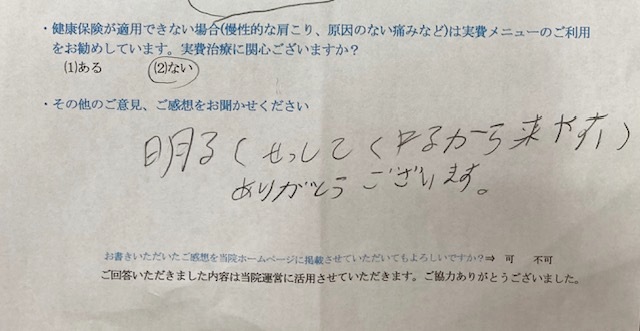 ・健康保険が適用できない場合(慢性的な肩こり、原因のない痛みなど)は実費メニューのご利用
をお勧めしています。実費治療に関心ございますか？
(1)ある (2)ない
・その他のご意見、ご感想をお聞かせください
明るくせっしてくれるから来やすい
ありがとうございます。
お書きいただいたご感想を当院ホームページに掲載させていただいてもよろしいですか？⇒ 可 不可
ご回答いただきました内容は当院運営に活用させていただきます。ご協力ありがとうございました。